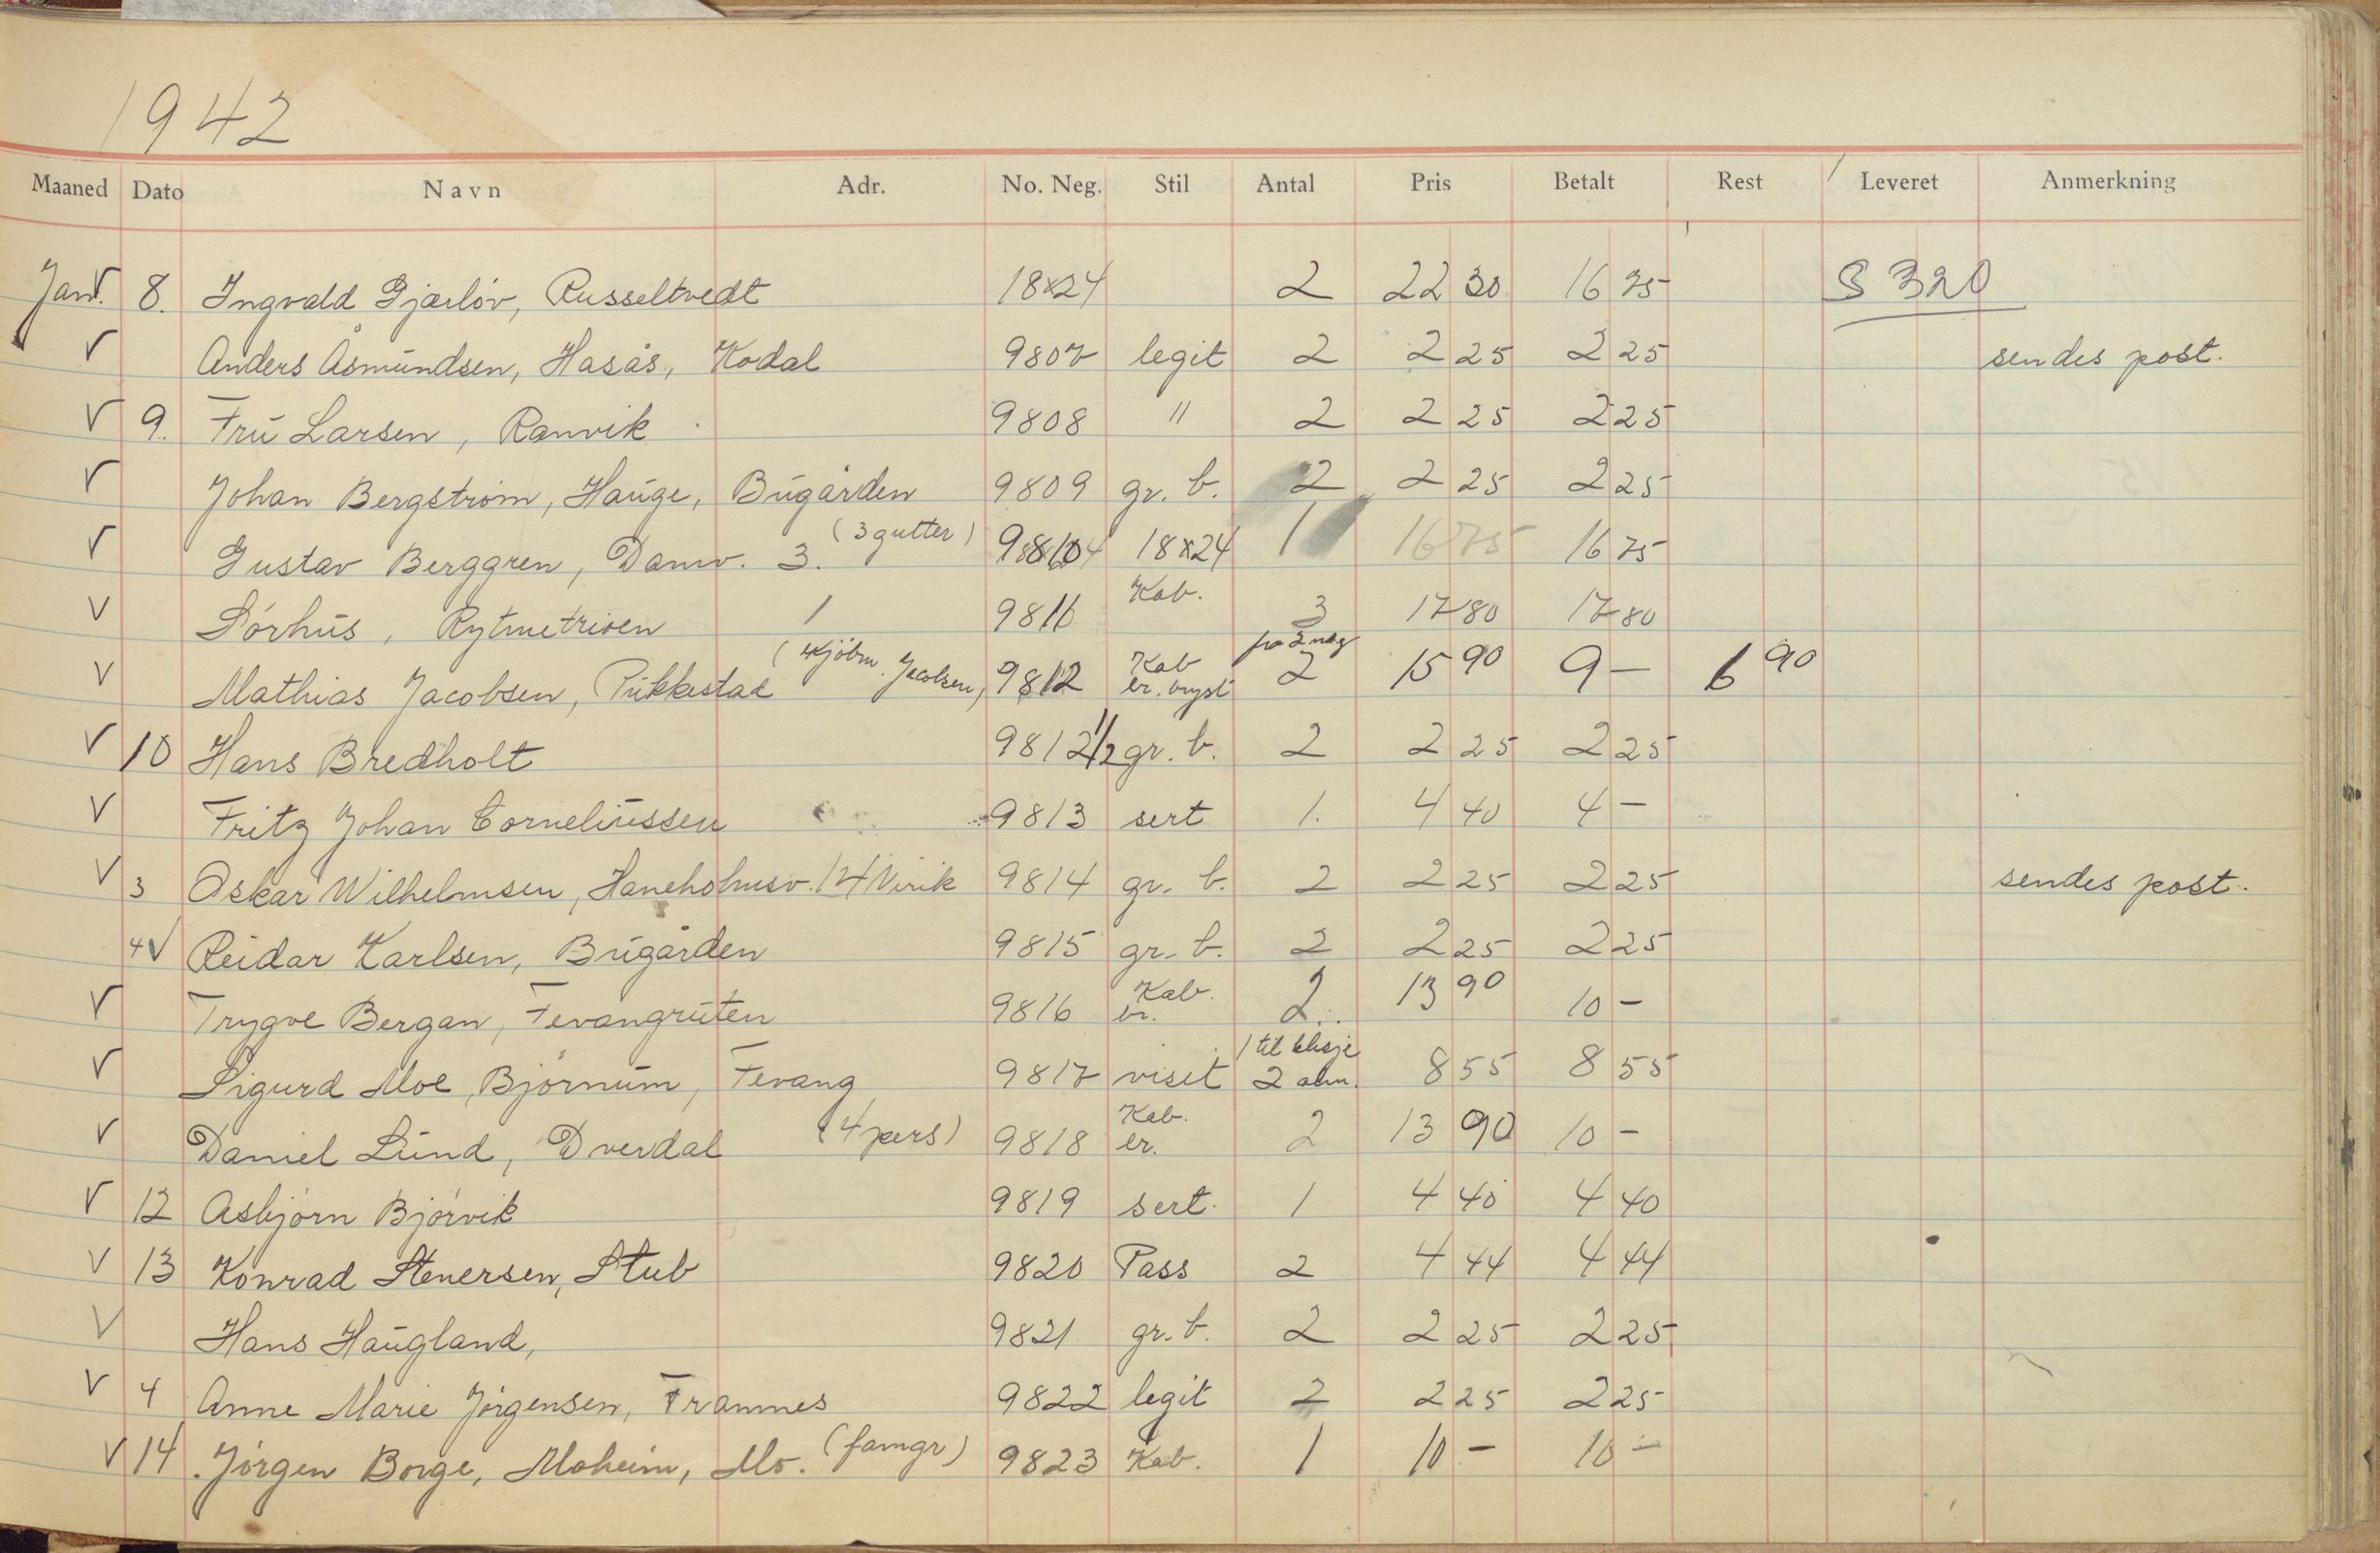 1942
Maaned Dato Navn Adr. No. Neg. Stil Antal Pris Betalt Rest Leveret Anmerkning
Jan. V 8. Ingvald Gjærløv, Russeltvedt 18x24 2 22 30 16 75 S 320
V Anders Åsmundsen, Hasås, Kodal 9807 legit 2 2 25 2 25 sendes post.
V 9. Fru Larsen, Ranvik 9808 " 2 2 25 2 25
V Johan Bergstrøm, Hauge, Bugården 9809 gr. b. 2 2 25 2 25
V Gustav Berggren, Damv. 3. (3 gutter) 18x24 1 16 75 16 75
V Sørhus, Rytmetrioen 9811 Kab. 3 17 80 17 80
V Mathias Jacobsen, Pukkestad Jacobsen) 9812 Kab br. bryst på 2 neg 2 15 90 9 — 6 90
V 10 Hans Bredholt 9812 1/2 gr. b. 2 2 25 2 25
V Fritz Johan Corneliussen 9813 sert 1. 4 40 4 —
V 3 Oskar Wilhelmsen, Haneholmsv. 14 Virik 9814 gr. b. 2 2 25 2 25 sendes post.
4 V Reidar Karlsen, Bugården 9815 gr. b. 2 2 25 2 25
V Trygve Bergan, Fevangruten 9816 Kab. br. 2 13 90 10 —
V Sigurd Moe, Bjørnum, Fevang 9817 viset 1 til klisje 2 alm. 8 55 8 55
V Daniel Lund, Dverdal (4 pers) 9818 Kab. br. 2 13 90 10 —
V 12 Asbjørn Bjørvik 9819 sert. 1 4 40 4 40
V 13 Konrad Stenersen, Stub 9820 Pass 2 4 44 4 44
V Hans Haugland, 9821 gr. b. 2 2 25 2 25
V 4 Anne Marie Jørgensen, Framnes 9822 legit 2 2 25 2 25
V 14. Jørgen Borge, Moheim, Mo. (famgr) 9823 Kab. 1 10 — 10 —